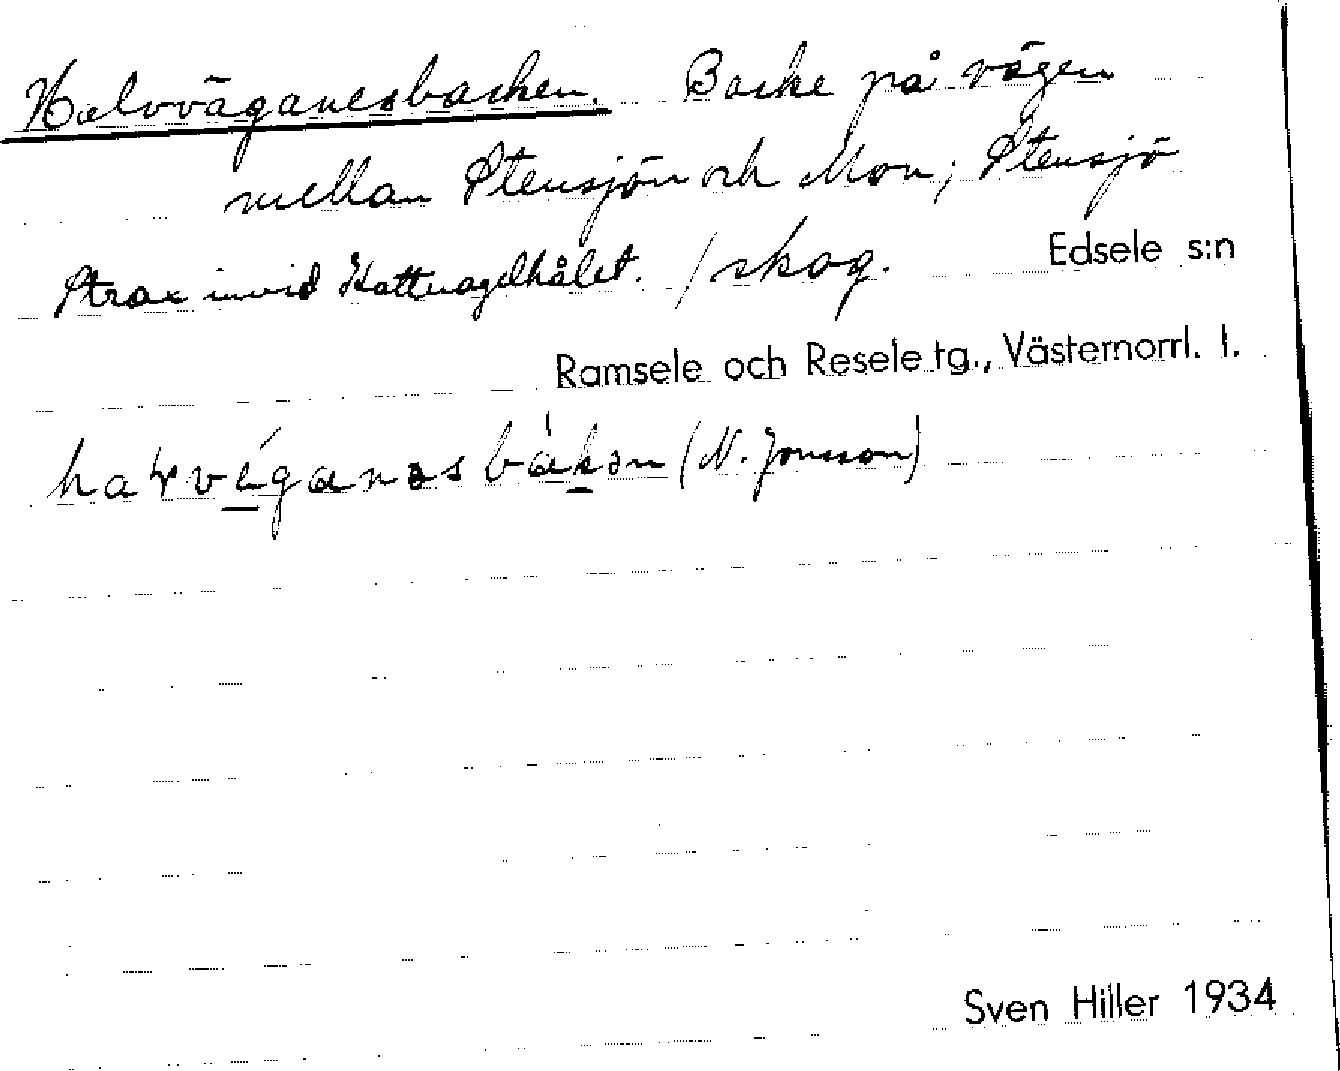 Halvväganesbacken. Backe på vägen
mellan Stensjön och Mon; Stensjö
Strax invid Kattnagelhålet. / skog. Edsele s:n
Ramsele och Resele tg., Västernorrl. l.
(N. Jonsson)
Sven Hiller 1934